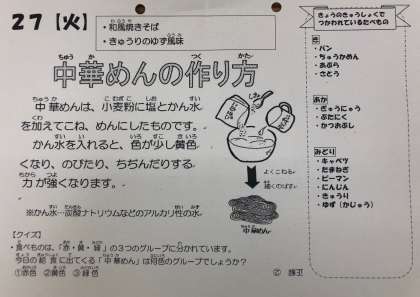 27【火】
・和風焼きそば
・きゅうりのゆず風味
中華めんの作り方
中華めんは、小麦粉に塩とかん水
を加えてこね、めんにしたものです。
かん水を入れると、色が少し黄色
くなり、のびたり、ちぢんだりする
力が強くなります。
※かん水…炭酸ナトリウムなどのアルカリ性の水
よくこねる
細くのばす
中華めん
【クイズ】
・食べものは、「赤・黄・緑」の3つのグループに分かれています。
今日の給食に出てくる「中華めん」は何色のグループでしょうか?
①赤色 ②黄色 ③緑色
きょうのきゅうしょくで
つかわれているたべもの
き
・パン
・ちゅうかめん
・あぶら
・さとう
あか
・ぎゅうにゅう
・ぶたにく
・かつおぶし
みどり
・キャベツ
・たまねぎ
・ピーマン
・にんじん
・きゅうり
・ゆず(かじゅう)